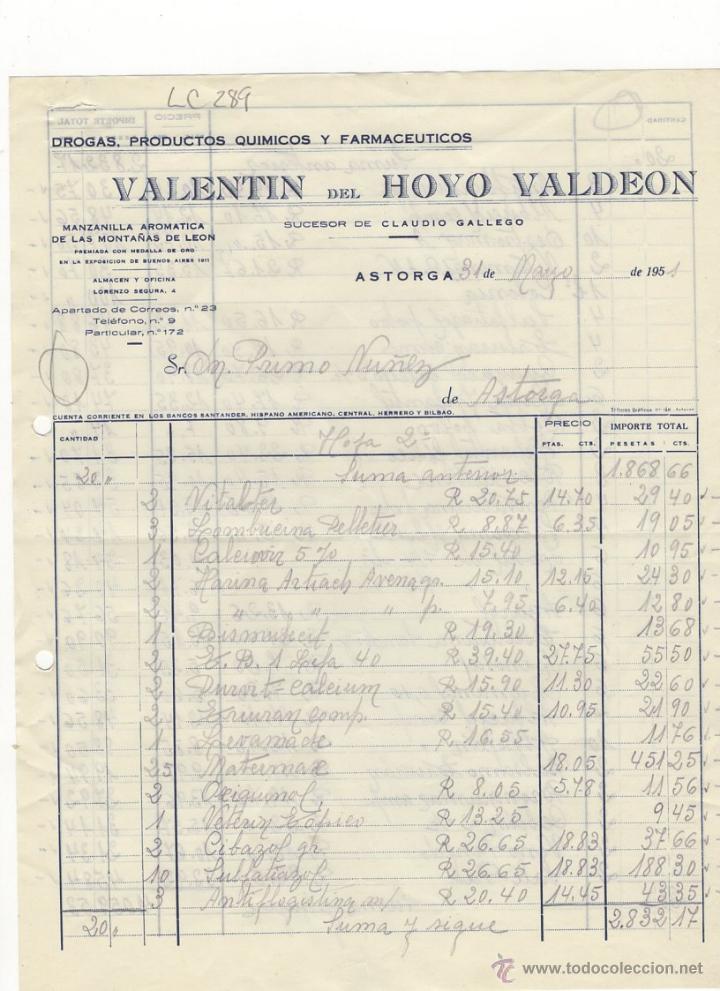 LC 289
DROGAS, PRODUCTOS QUIMICOS Y FARMACEUTICOS
VALENTIN DEL HOYO VALDEON
SUCESOR DE CLAUDIO GALLEGO
MANZANILLA AROMATICA
DE LAS MONTAÑAS DE LEON
PREMIADA CON MEDALLA DE ORO
EN LA EXPOSICION DE BUENOS AIRES 1911
ALMACEN Y OFICINA
LORENZO SEGURA, 4
Apartado de Correos, n.º 23
Teléfono, n.º 9
Particular, n.º 172
ASTORGA 31 de Marzo de 1951
Sr. Dn. Primo Nuñez
de Astorga
CUENTA CORRIENTE EN LOS BANCOS SANTANDER, HISPANO AMERICANO, CENTRAL, HERRERO Y BILBAO.
CANTIDAD PRECIO IMPORTE TOTAL
PTAS. CTS. PESETAS CTS.
Hoja 2ª
20 " Suma anterior 1.868 66
2 R 20.75 14.70 29 40
3 Pelletier R 8.87 6.35 19 05
1 5 % R 15.40 10 95
2 Harina Artiach 15.10 12.15 24 30
2 " " " p. 7.95 6.40 12 80
1 R 19.30 13 68
2 B. 1 40 R 39.40 27.75 55 50
2 calcium R 15.90 11.30 22 60
2 comp. R 15.40 10.95 21 90
1 R 16.55 11 76
25 18.05 451 25
2 Oxiquinol R 8.05 5.78 11 56
1 R 13.25 9 45
2 Cibazol gr. R 26.65 18.83 37 66
10 R 26.65 18.83 188 30
3 Antiflogistina R 20.40 14.45 43 35
20 " Suma y sigue 2.832 17
www.todocoleccion.net